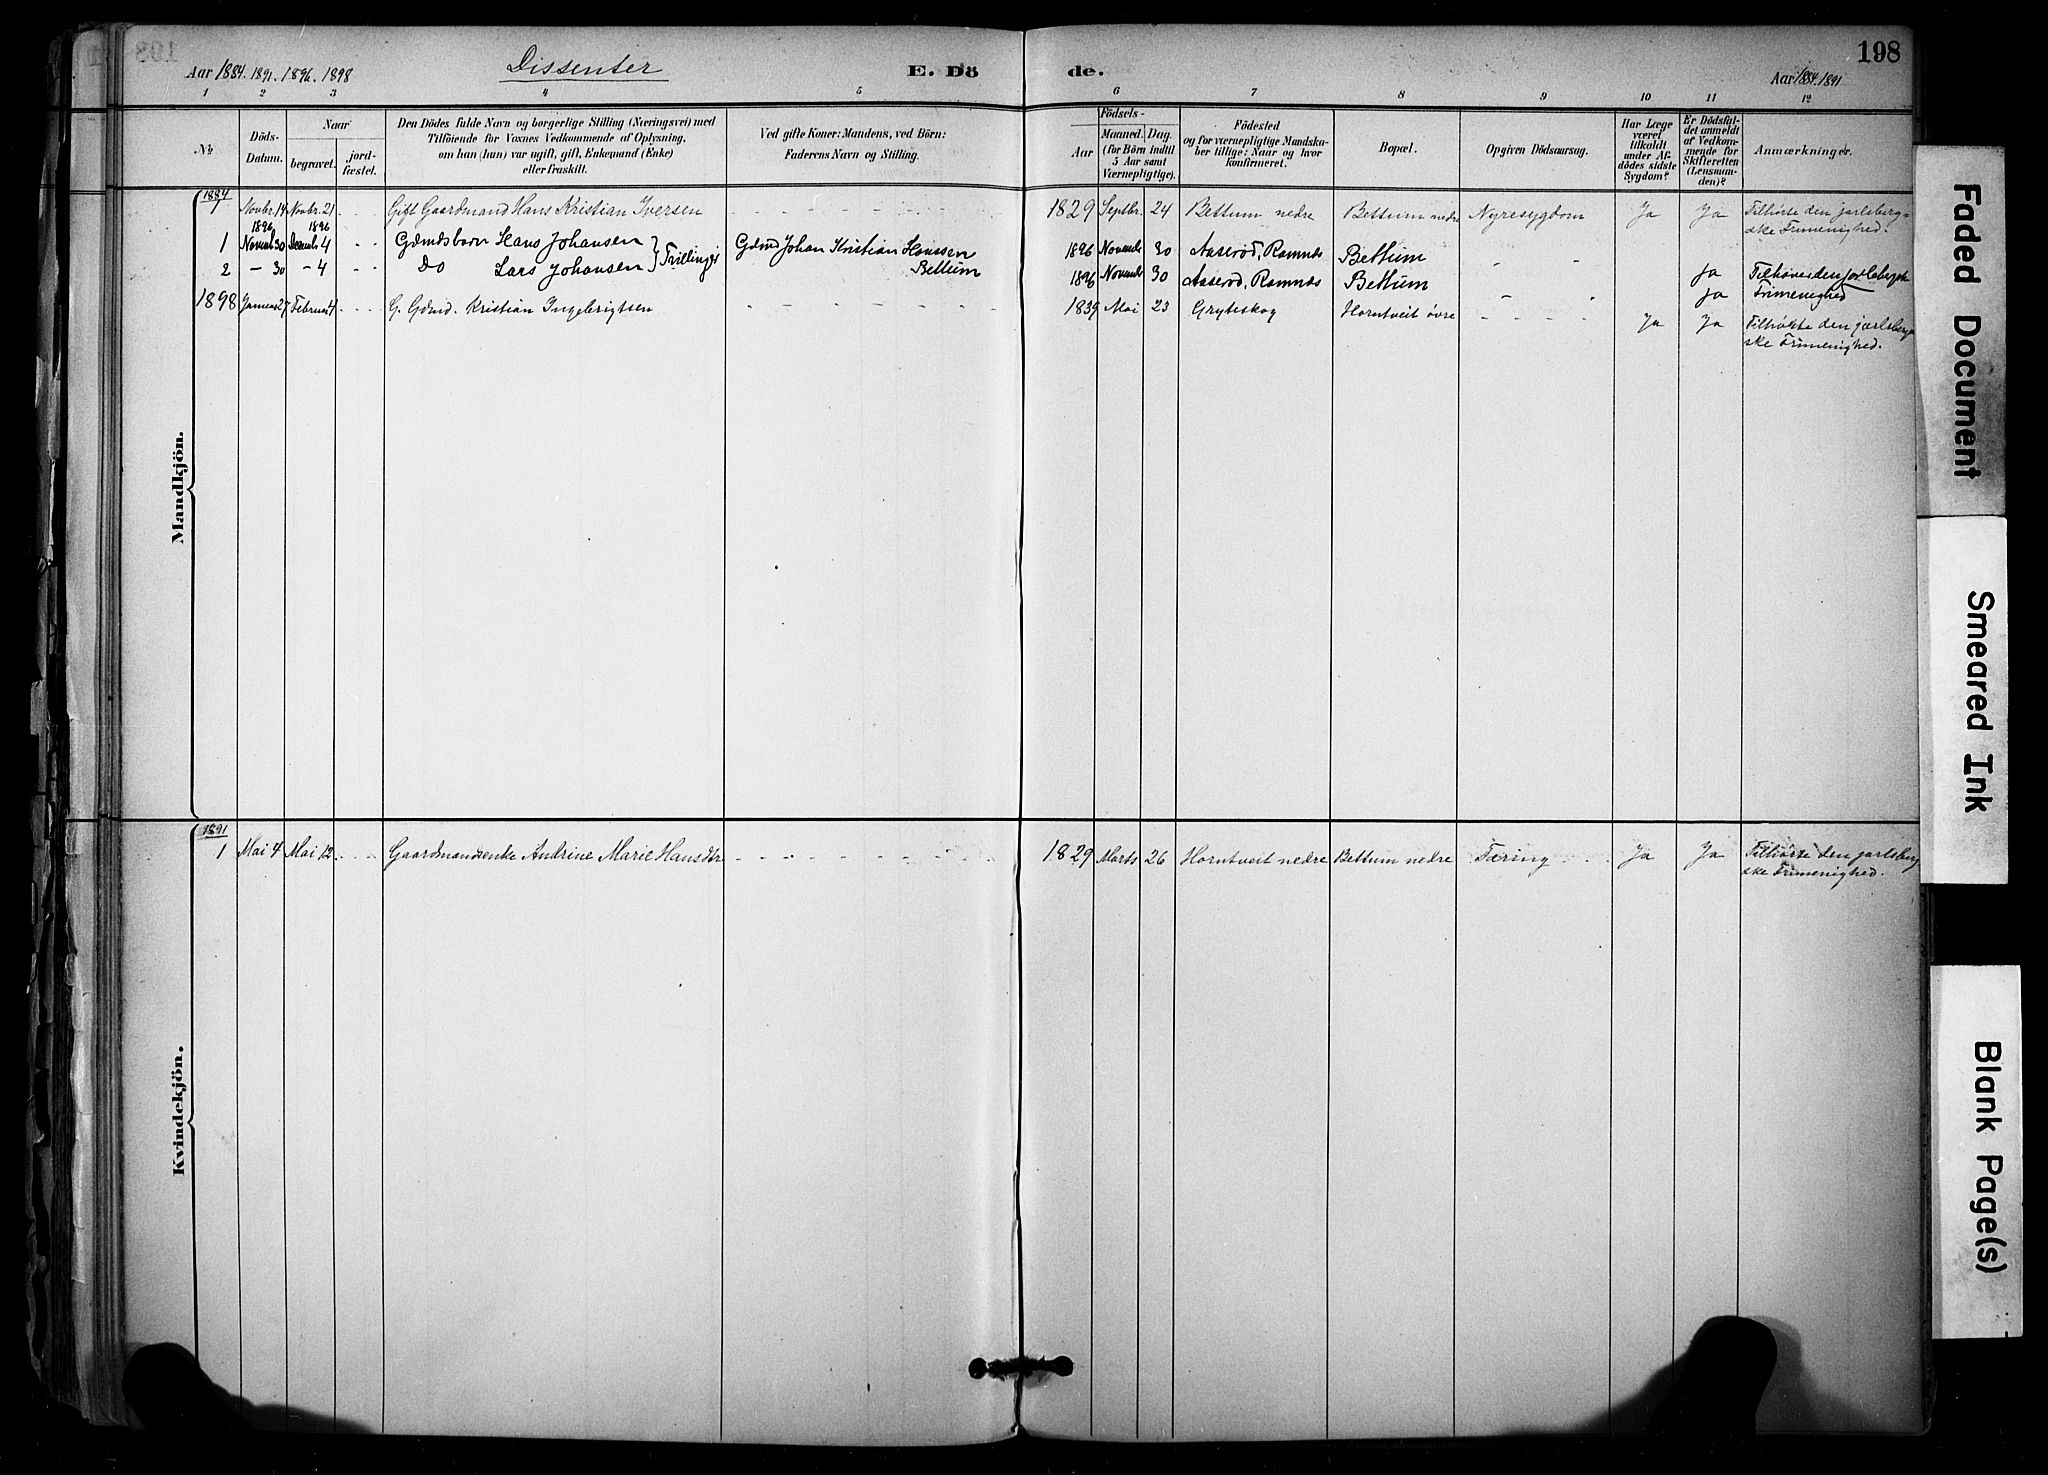 Aar 1884. 1891. 1896. 1898
Dissenter
E. Dö
de.
198
Aar 1884. 1891
1 2 3 4 5 6 7 8 9 10 11 12
No
Döds-Datum.
Naar
begravet.
jord-fæstet.
Den Dödes fulde Navn og borgerlige Stilling (Næringsvei) med
Tilföiende for Voxnes Vedkommende af Oplysning,
om han (hun) var ugift, gift, Enkemand (Enke)
eller fraskilt.
Ved gifte Koner: Mandens, ved Börn:
Faderens Navn og Stilling.
Födsels-
Aar
Maaned. Dag.
(for Börn indtil
5 Aar samt
Værnepligtige).
Födested
og for værnepligtige Mandska-
ber tillige: Naar og hvor
konfirmeret.
Bopæl.
Opgiven Dödsaarsag.
Har Læge
været
tilkaldt
under Af-
dödes sidste
Sygdom?
Er Dödsfal-
det anmeldt
af Vedkom-
mende for
Skifteretten
(Lensman-
den)?
Anmærkninger.
Mandkjön.
1884
1 Novbr. 14 Novbr. 21 - - - Gift Gaardmand Hans Kristian Iversen - - - - - - 1829 Septbr. 24 Bettum nedre Bettum nedre Nyresygdom Ja Ja Tilhørte den jarlsberg-
ske Frimenighed.
1896 1896
1 Novemb. 30 Decemb. 4 - - Gdmdsbarn Hans Johansen } Trillinger Gdmd Johan Kristian Hanssen 1896 Novemb 30 Aaserød, Ramnæs Bettum - -
2 - 30 - 4 - - Do Lars Johansen Bettum 1896 Novemb 30 Aaserød, Ramnæs Bettum - - ja Tilhører den jarlsbergske
ja Frimenighed
1898 Januar 27 Februar 4 - - - G. Gdmd. Kristian Ingebrigtsen - - - - - - 1839 Mai 23 Gryteskog Horntveit øvre - - - - Ja Ja Tilhørte den jarlsberg-
ske Frimenighed.
Kvindekjön.
1891
1 Mai 4 Mai 12 - - - Gaardmandsenke Andrine Marie Hansdtr. - - - - - - 1829 Marts 26 Horntveit nedre Bettum nedre Tæring - - Ja Ja Tilhørte den jarlsberg-
ske Frimenighed.
Faded Document
Smeared Ink
Blank Page(s)